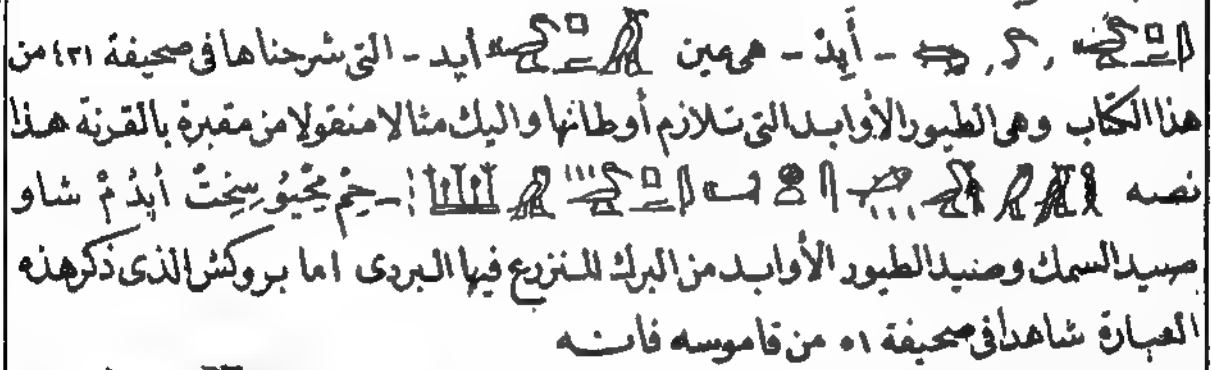 - أَبِدْ - هى عين أبد - التى شرحناها فى صحيفة ٤٣١ من
هذا الكتاب وهى الطيور الأوابد التى تلازم أوطانها واليك مثالا منقولا من مقبرة بالقرنة هذا
نصه - حِمْ مِحْيُو سِخِتْ أَبِدُ مْ شاو
صيد السمك وصيد الطيور الأوابد من البرك المنزرع فيها البردى اما بروكش الذى ذكر هذه
العبارة شاهدا فى صحيفة ٥١ من قاموسه فانه